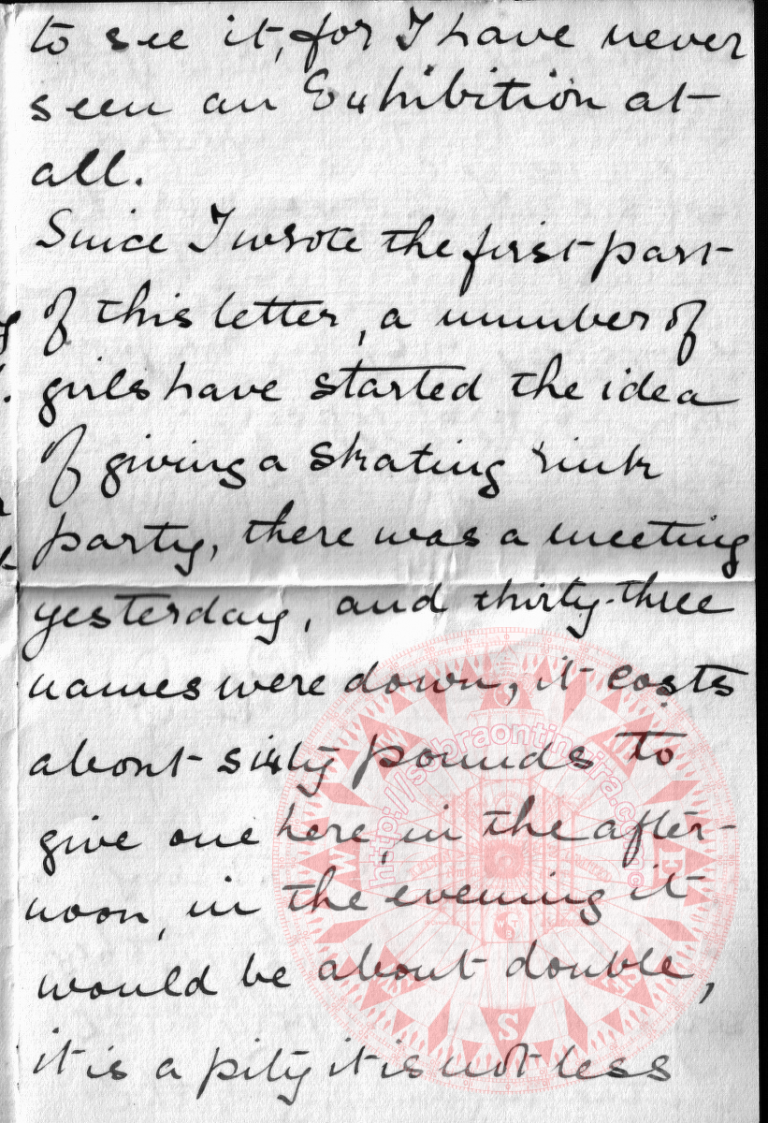 to see it, for I have never
seen an Exhibition at
all.
Since I wrote the first part
of this letter, a number of
girls have started the idea
of giving a skating rink
party, there was a meeting
yesterday, and thirty-three
names were down, it costs
about sixty pounds to
give one here, in the after-
noon, in the evening it
would be about double,
it is a pity it is not less